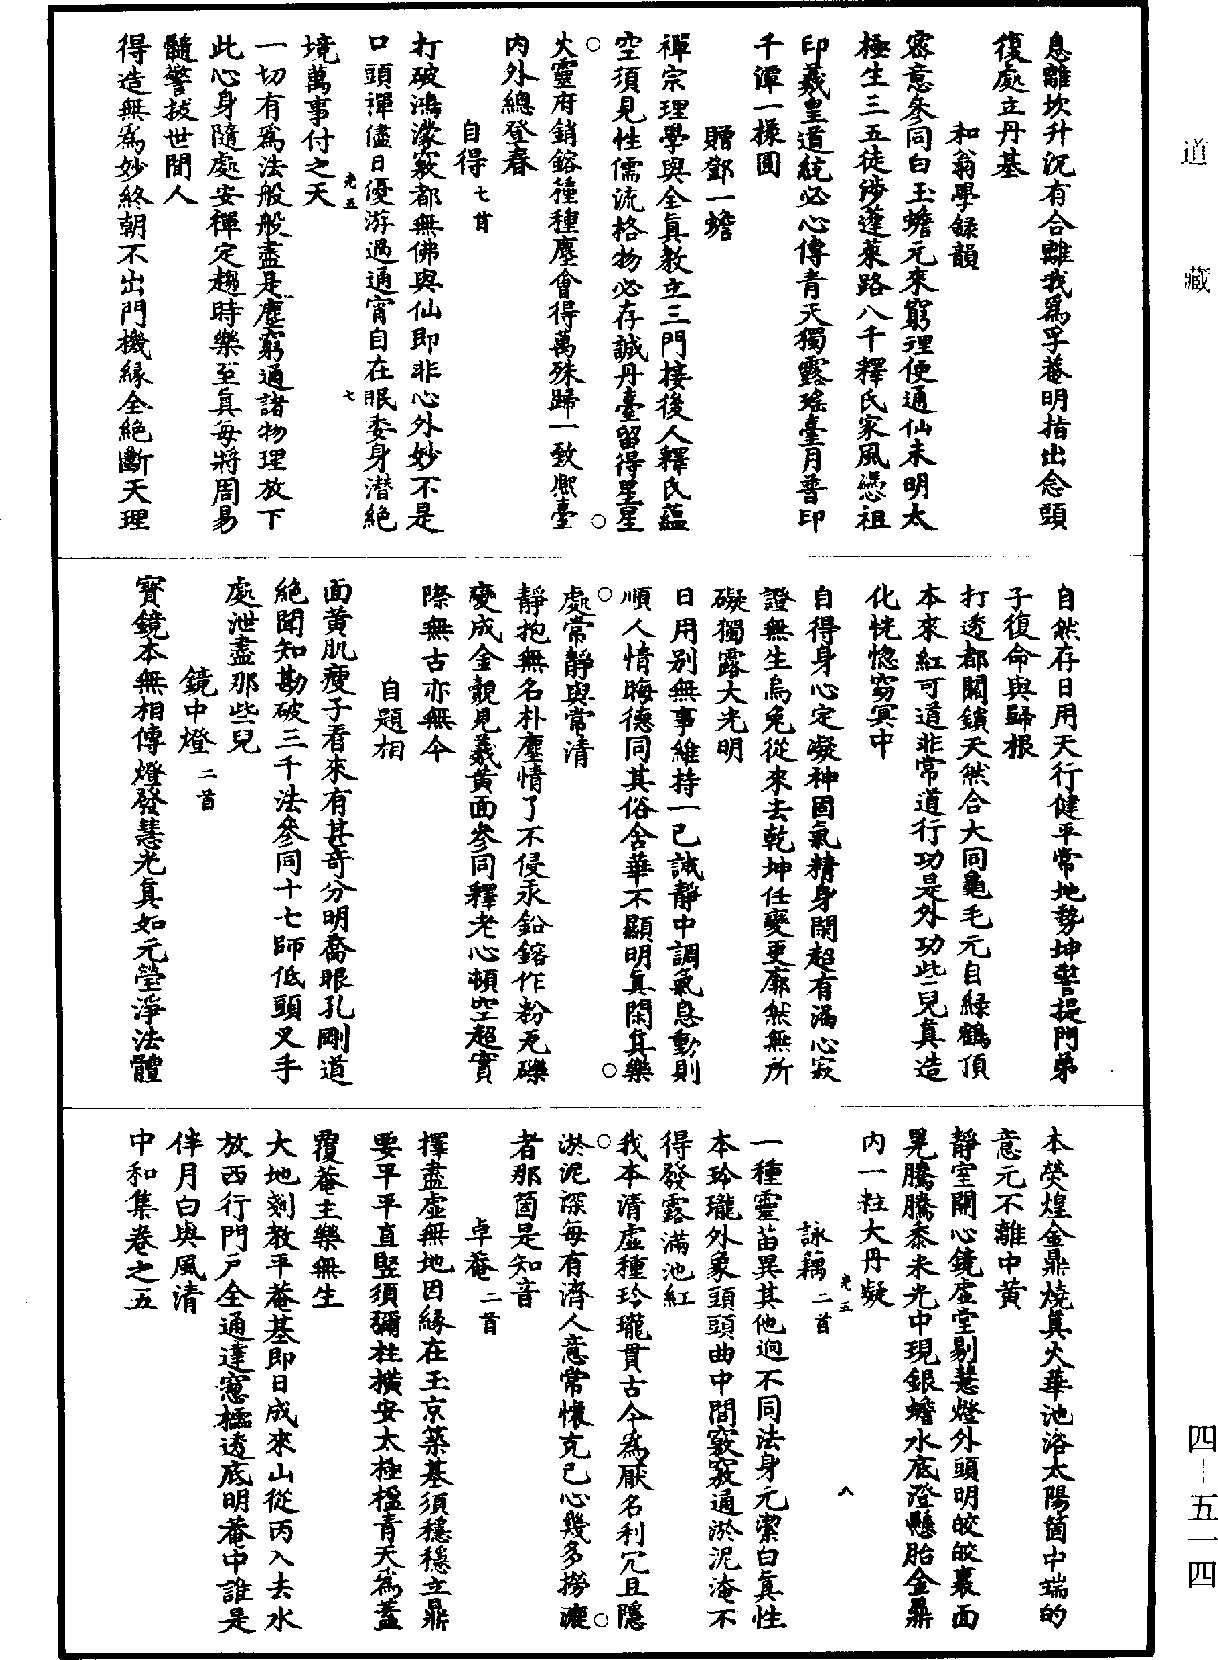 道藏
息離坎升沉有合離我爲孚菴明指出念頭
復處立丹基
和翁學錄韻
密意參同白玉蟾元來窮理便通仙未明太
極生三五徒涉蓬萊路八千釋氏家風憑祖
印羲皇道統必心傳青天獨露瑤臺月普印
千潭一樣圓
贈鄧一蟾
禪宗理學與全真教立三門接後人釋氏蘊
空須見性儒流格物必存誠丹臺留得星星
火靈府銷鎔種種塵會得萬殊歸一致熈臺
內外總登春
自得七首
打破鴻濛竅都無佛與仙即非心外妙不是
口頭禪儘日優游過通宵自在眠委身潜絶
境萬事付之天
光五 七
一切有爲法般般盡是塵窮通諸物理放下
此心身隨處安禪定趨時樂至真每將周易
髓警拔世間人
得造無爲妙終朝不出門機緣全絶斷天理
自然存日用天行健平常地勢坤誓提門弟
子復命與歸根
打透都關鎖天然合大同龜毛元自綠鶴頂
本來紅可道非常道行功是外功些兒真造
化恍惚窈冥中
自得身心定凝神固氣精身閑超有漏心寂
證無生烏兔從來去乾坤任變更廓然無所
礙獨露大光明
日用别無事維持一已誠靜中調氣息動則
順人情晦德同其俗含華不顯明真閑真樂
處常靜與常清
靜抱無名朴塵情了不侵汞鉛鎔作粉瓦礫
變成金覿見羲黃面參同釋老心頓空超實
際無古亦無今
自題相
面黄肌瘦子看來有甚奇分明喬眼孔剛道
絶聞知勘破三千法參同十七師低頭叉手
處泄盡那些兒
鏡中燈二首
寶鏡本無相傳燈發慧光真如元瑩淨法體
本熒煌金鼎燒真火華池浴太陽箇中端的
意元不離中黄
靜室開心鏡虛堂剔慧燈外頭明皎皎裏面
晃騰騰黍米光中現銀蟾水底澄懸胎金鼎
內一粒大丹凝
光五 八
詠藕二首
一種靈苗異其他迥不同法身元潔白真性
本玲瓏外象頭頭曲中間竅竅通淤泥淹不
得發露滿池紅
我本清虛種玲瓏貫古今爲厭名利冗且隱
淤泥深每有濟人意常懷克己心幾多撈漉
者那箇是知音
卓菴二首
擇盡虛無地因緣在玉京築基須穩穩立鼎
要平平直竪須彌柱横安太極楹青天爲蓋
覆菴主樂無生
大地剗教平菴基即日成來山從丙入去水
放西行門戶全通達窻櫺透底明菴中誰是
伴月白與風清
中和集卷之五
四—五一四